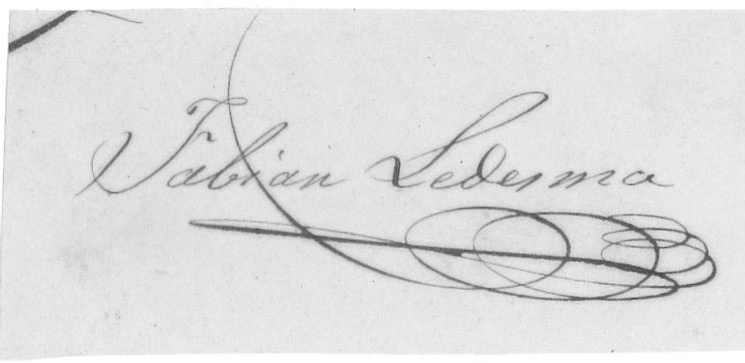 Fabian Ledesma